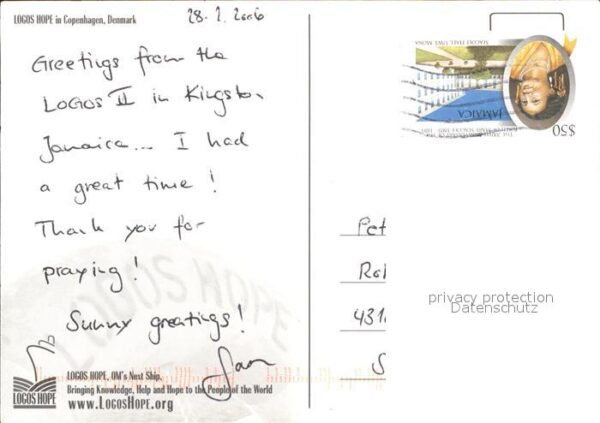 LOGOS HOPE in Copenhagen, Denmark
28. 2. 2006
Greetings from the
LOGOS II in Kingston,
Jamaica... I had
a great time!
Thank you for
praying!
Sunny greetings!
LOGOS HOPE
LOGOS HOPE, OM's Next Ship,
Bringing Knowledge, Help and Hope to the People of the World
www.LOGOSHOPE.org
LOGOS HOPE
$50
JAMAICA
Pet
Rol
431
S
privacy protection
Datenschutz